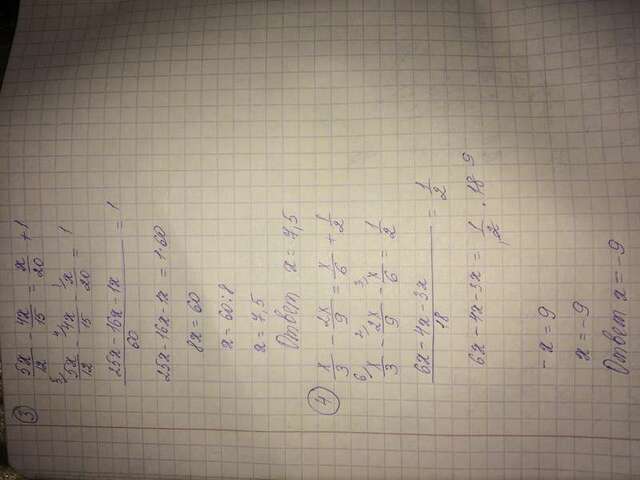 ③ 5x/12 - 4x/15 = x/20 + 1
⁵⁄5x/12 - ⁴⁄4x/15 - ³⁄x/20 = 1
25x - 16x - 1x/60 = 1
25x - 16x - 1x = 1·60
8x = 60
x = 60:8
x = 7,5
Ответ x = 7,5
④ x/3 - 2x/9 = x/6 + 1/2
⁶⁄x/3 - ²⁄2x/9 - ³⁄x/6 = 1/2
6x - 4x - 3x/18 = 1/2
6x - 4x - 3x = 1/2 · 18 9
-x = 9
x = -9
Ответ x = -9